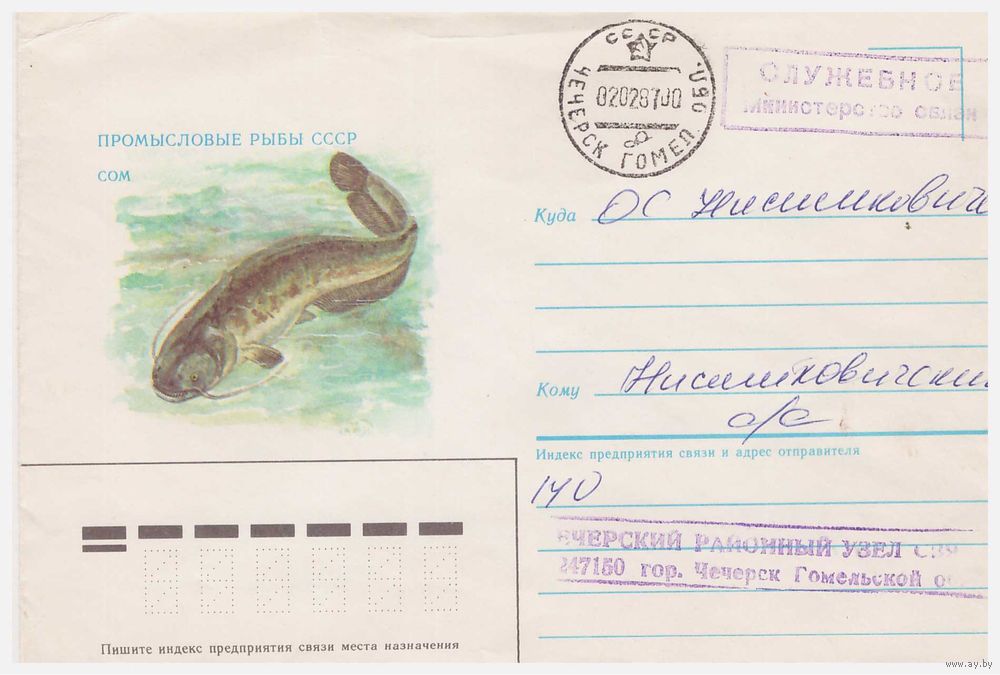 СССР
ЧЕЧЕРСК ГОМЕЛ. ОБЛ.
02028700
СЛУЖЕБНОЕ
Министерство связи
ПРОМЫСЛОВЫЕ РЫБЫ СССР
СОМ
Куда ОС Нисимковичи
Кому Нисимковичский
о/с
Индекс предприятия связи и адрес отправителя
ЧЕЧЕРСКИЙ РАЙОННЫЙ УЗЕЛ СВЯ
247150 гор. Чечерск Гомельской о
Пишите индекс предприятия связи места назначения
www.ay.by